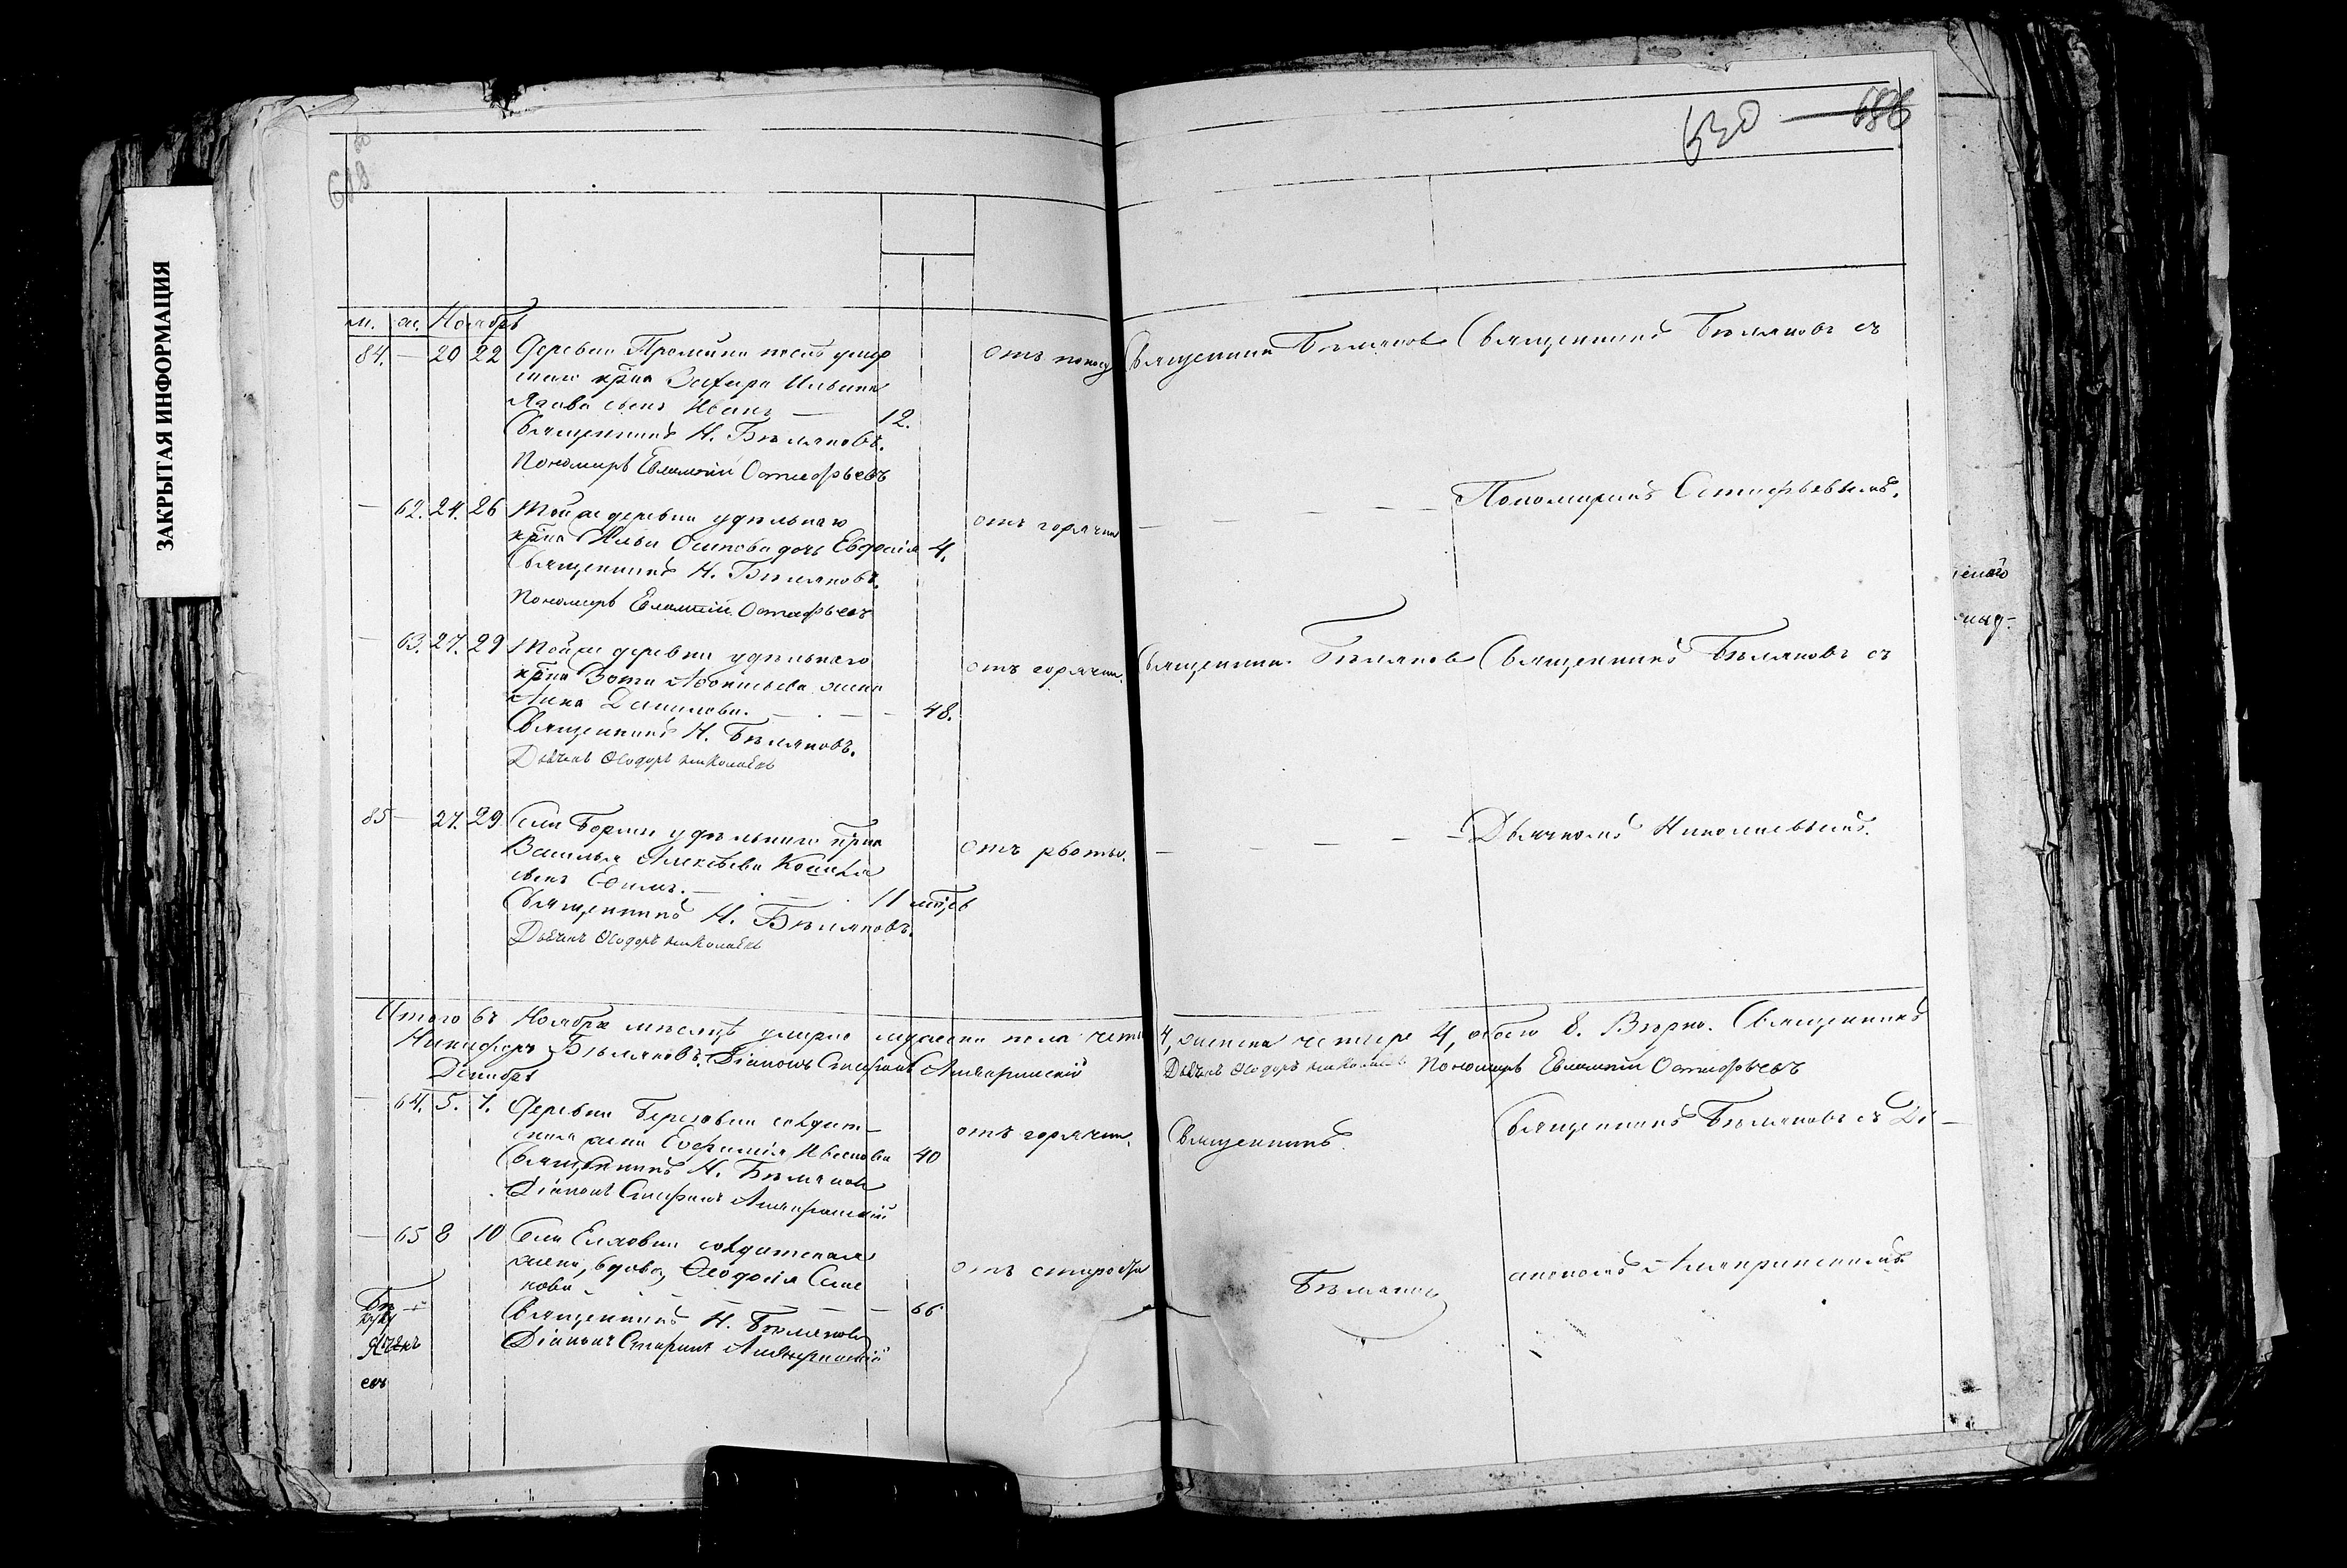 ЗАКРЫТАЯ ИНФОРМАЦИЯ
630 686
м. ж. Ноябрь
84. — 20 22 Деревни Промзины
крна Захара Ильина
сынъ Иванъ — 12.
Священникъ Н. Бѣляковъ.
Пономарь Евлампій Остафьевъ
Священникъ Бѣляковъ Священникъ Бѣляковъ съ
— 62. 24. 26 Той же деревни удѣльнаго
крна Ильи Осипова дочь Евдокія 4.
Священникъ Н. Бѣляковъ.
Пономарь Евлампій Остафьевъ
отъ горячки — — — — — Пономаремъ Остафьевымъ.
— 63. 27. 29 Той же деревни удѣльнаго
крна Зота Леонтьева жена
Анна Данилова. — 48.
Священникъ Н. Бѣляковъ.
Дьячекъ Ѳеодоръ Николаевъ
отъ горячки. Священникъ Бѣляковъ Священникъ Бѣляковъ съ
85 — 27. 29 Села удѣльнаго крна
Василья Алексѣева
сынъ Ефимъ. — 11 мцевъ
Священникъ Н. Бѣляковъ.
Дьячекъ Ѳеодоръ Николаевъ
отъ рвоты. — — — — Дьячкомъ Николаевымъ.
Итого въ Ноябрѣ мѣсяцѣ умерло мужеска пола четы 4, женска четыре 4, обоего 8. Вѣрно. Священникъ
Никифоръ Бѣляковъ. Діаконъ Стефанъ Дьячекъ Ѳеодоръ Николаевъ Пономарь Евлампій Остафьевъ
Декабрь
— 64. 5. 7. Деревни Березовки солдат-
ская жена Евфимія Иванова 40
Священникъ Н. Бѣляковъ
Діаконъ Стефанъ
отъ горячки. Священникъ Священникъ Бѣляковъ съ Ді-
— 65 8 10 Села Елховки солдатская
жена, вдова, Ѳеодосія Семе
нова — 66
Священникъ Н. Бѣляковъ
Діаконъ Стефанъ
отъ старости Бѣляковъ акономъ